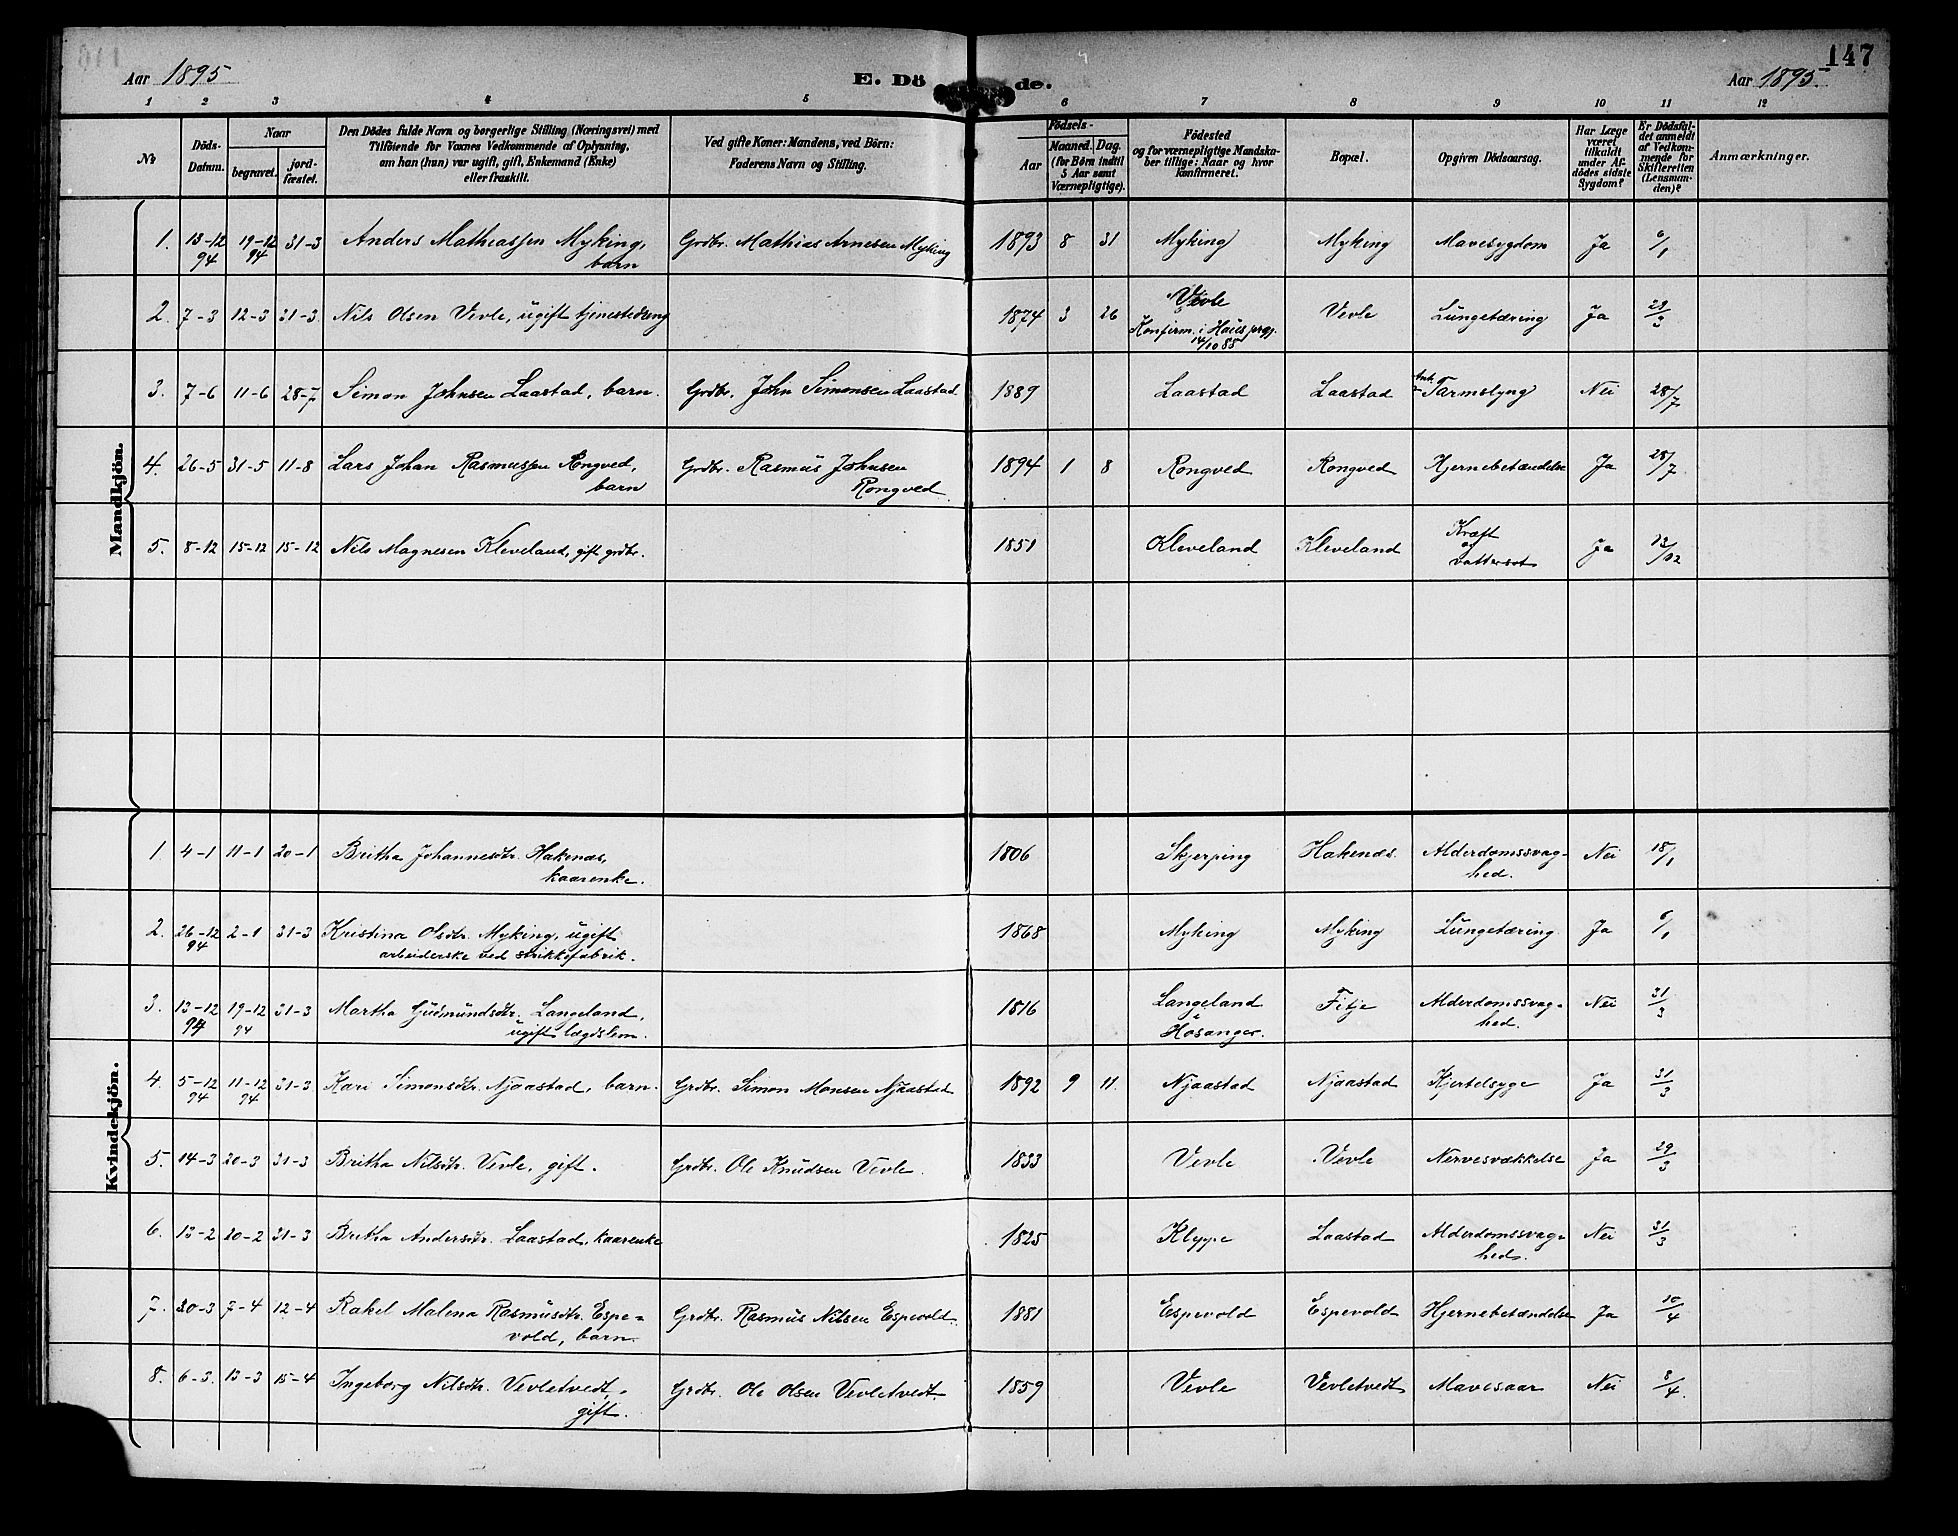 147
Aar 1895 E. Dö de. Aar 1895.
1 2 3 4 5 6 7 8 9 10 11 12
No
Döds-Datum.
Naar
begravet.
jord-fæstet.
Den Dödes fulde Navn og borgerlige Stilling (Næringsvei) med
Tilföiende for Voxnes Vedkommende af Oplysning,
om han (hun) var ugift, gift, Enkemand (Enke)
eller fraskilt.
Ved gifte Koner: Mandens, ved Börn:
Faderens Navn og Stilling.
Födsels-
Aar
Maaned. Dag.
(for Börn indtil
5 Aar samt
Værnepligtige).
Födested
og for værnepligtige Mandska-
ber tillige: Naar og hvor
konfirmeret.
Bopæl.
Opgiven Dödsaarsag.
Har Læge
været
tilkaldt
under Af-
dödes sidste
Sygdom?
Er Dödsfal-
det anmeldt
af Vedkom-
mende for
Skifteretten
(Lensman-
den)?
Anmærkninger.
Mandkjön.
1. 13-12 94 19-12 94 31-3 Anders Mathiassen Myking, barn Grdbr. Mathias Arnesen Myking 1893 8 31 Myking Myking Mavesygdom Ja 6/1
2. 7-3 12-3 31-3 Nils Olsen Vevle, ugift tjenestedreng 1874 3 26 Vevle Konfirm. i Haus prgj. 14/10 88 Vevle Lungetæring Ja 29/3
3. 7-6 11-6 28-7 Simon Johnsen Laastad, barn. Grdbr. John Simonsen Laastad 1889 Laastad Laastad Tarmslyng Nei 28/7
4. 26-5 31-5 11-8 Lars Johan Rasmussen Rongved, barn Grdbr. Rasmus Johnsen Rongved 1894 1 8 Rongved Rongved Hjernebetændelse Ja 28/7
5. 8-12 15-12 15-12 Nils Magnesen Kleveland, gift grdbr. 1851 Kleveland Kleveland Kræft og vattersot Ja /12
Kvindekjön.
1. 4-1 11-1 20-1 Britha Johannesdtr. Hakenæs, kaarenke. 1806 Skjerping Hakenæs Alderdomssvag-hed. Nei 18/1
2. 26-12 94 2-1 31-3 Kristina Olsdtr. Myking, ugift arbeiderske ved strikkefabrik. 1868 Myking Myking Lungetæring Ja 6/1
3. 13-12 94 19-12 94 31-3 Martha Gudmundsdtr. Langeland, ugift lægdslem. 1816 Langeland Hosanger. Fitje Alderdomssvag-hed. Nei 31/3
4. 5-12 94 11-12 94 31-3 Kari Simonsdtr. Njaastad, barn. Grdbr. Simon Monsen Njaastad 1892 9 11. Njaastad Njaastad Kjertelsyge Ja 31/3
5. 14-3 20-3 31-3 Britha Nilsdtr. Vevle, gift. Grdbr. Ole Knudsen Vevle. 1833 Vevle Vevle Nervesvækkelse Ja 29/3
6. 13-2 20-2 31-3 Britha Andersdtr. Laastad, kaarenke 1825 Kleppe Laastad Alderdomssvag-hed. Nei 31/3
7. 30-3 7-4 12-4 Rakel Malena Rasmusdtr. Espe-vold, barn. Grdbr. Rasmus Nilsen Espevold. 1881 Espevold Espevold Hjernebetændelse Ja 10/4
8. 6-3. 13-3 15-4 Ingeborg Nilsdtr. Vevletvedt, gift. Grdbr. Ole Olsen Vevletvedt. 1859 Vevle Vevletvedt Mavesaar Nei 8/4.